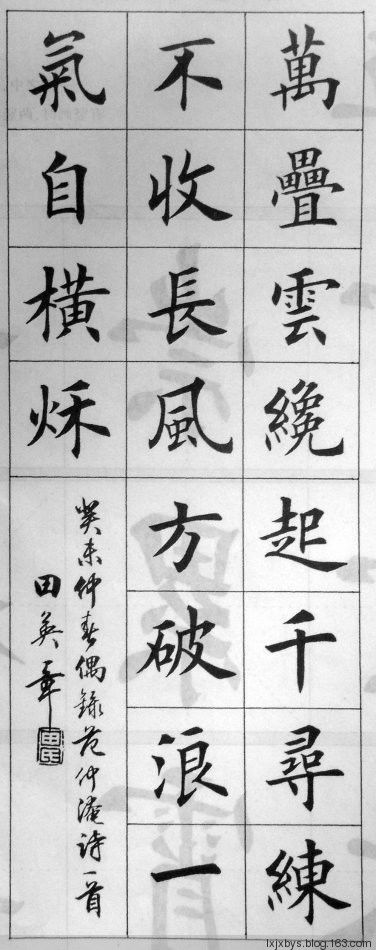 萬疊雲纔起千尋練
不收長風方破浪一
氣自橫秌
癸未仲春偶錄范仲淹詩一首
田英章
lxjxbys.blog.163.com